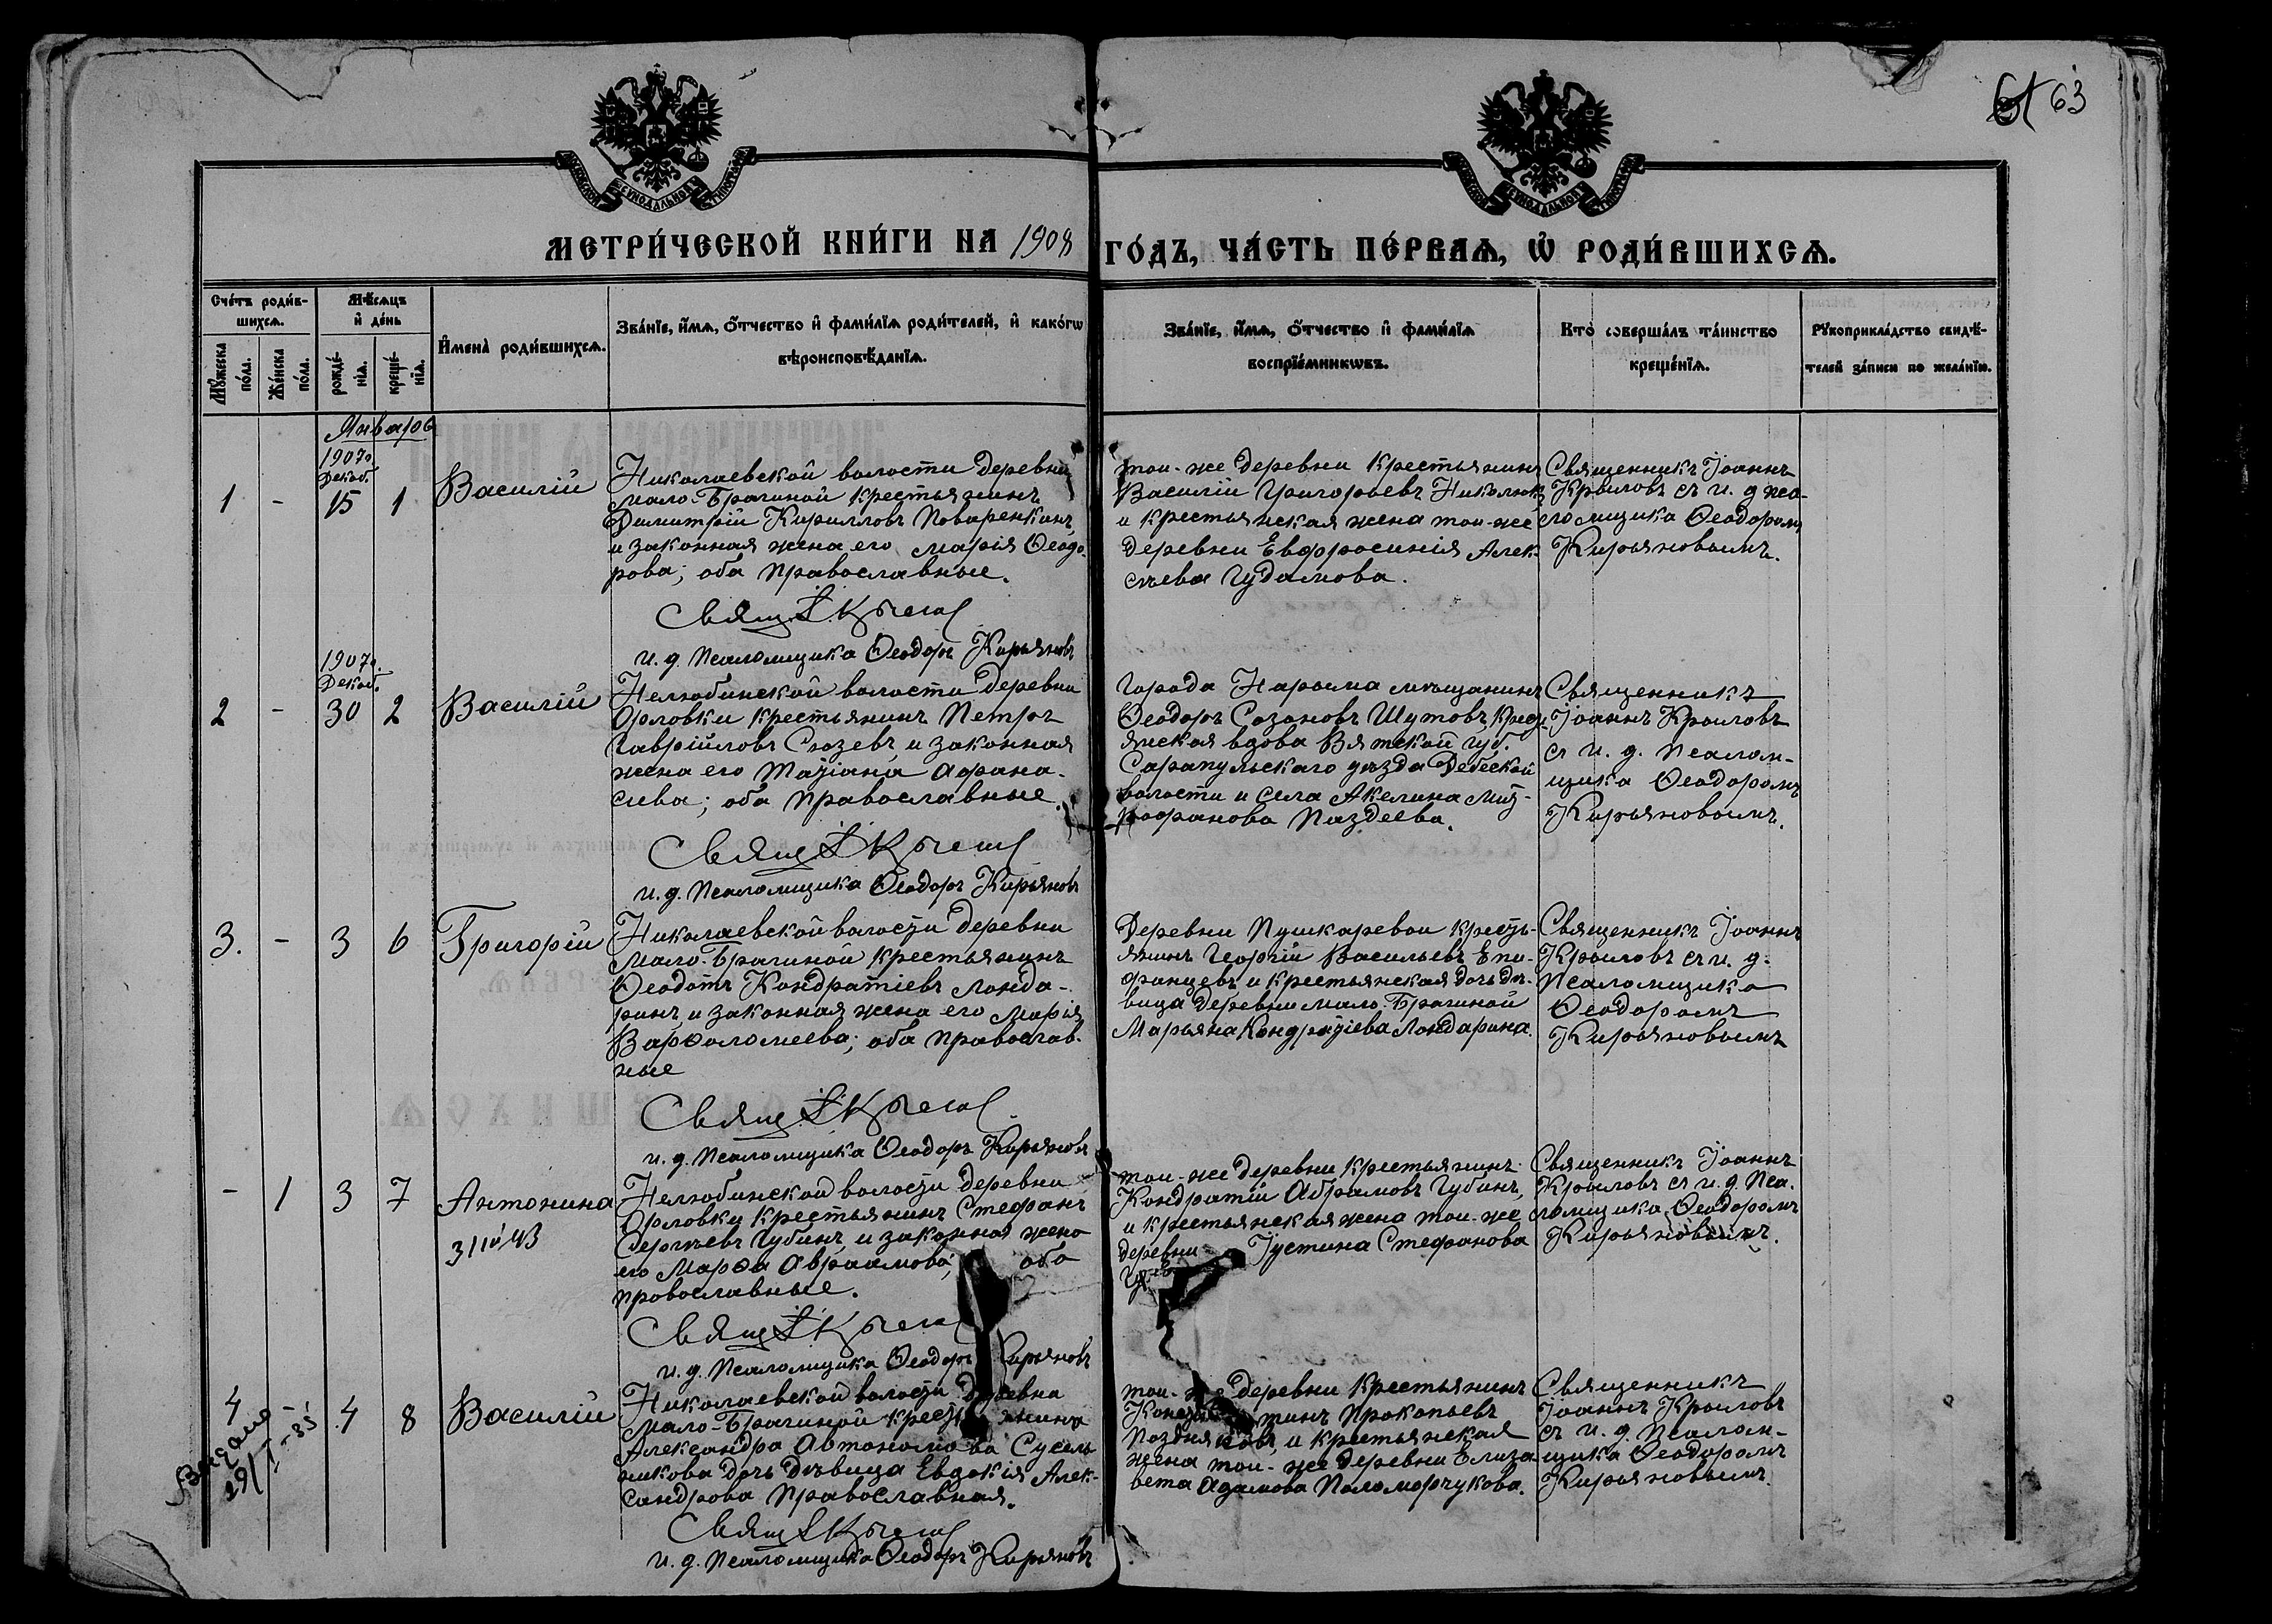 63
СѴНОДАЛЬНОЙ
СѴНОДАЛЬНОЙ
МЕТРИ́ЧЕСКОЙ КНИ́ГИ НА 1908
ГО́ДЪ, ЧА́СТЬ ПЕ́РВАѦ, Ѡ҆ РОДИ́ВШИХСѦ.
Сче́тъ роди́в-
шихсѧ.
Мѣ́сѧцъ
и҆ де́нь
Мꙋ́жеска
по́ла.
Же́нска
по́ла.
рожде́-
нїѧ.
креще́-
нїѧ.
И҆мена̀ роди́вшихсѧ.
Зва́нїе, и҆́мѧ, ѻ҆́тчество и҆ фами́лїѧ роди́телей, и҆ како́гѡ
вѣроисповѣ́данїѧ.
Зва́нїе, и҆́мѧ, ѻ҆́тчество и҆ фами́лїѧ
воспрїе́мникѡвъ.
Кто̀ соверша́лъ та́инство
креще́нїѧ.
Рꙋкоприкла́дство свидѣ́-
телей за́писи по жела́нїю.
Января
1907г.
Декаб.
1 - 15 1 Василій
Николаевской волости деревни
Мало-Брагиной крестьянинъ
Димитрій Кирилловъ Поваренкинъ
и законная жена его Марія Ѳеодо-
рова; оба православные.
Свящ. І. Крылов
и. д. псаломщика Ѳеодоръ Кирьяновъ
той-же деревни крестьянинъ
Василій Григорьевъ
и крестьянская жена той-же
деревни Евфросинія Алек-
сѣева Гудамова.
Священникъ Іоаннъ
Крыловъ съ и. д. пса-
ломщика Ѳеодоромъ
Кирьяновымъ.
1907г.
Декаб.
2 - 30 2 Василій
Нелюбинской волости деревни
Орловки крестьянинъ Петръ
Гавріиловъ Сюзевъ и законная
жена его Татіана Афана-
сіева; оба православные.
Свящ. І. Крылов
и. д. псаломщика Ѳеодоръ Кирьяновъ
Города Нарыма мѣщанинъ
Ѳеодоръ Созоновъ Шутовъ, крест-
янская вдова Вятской губ.
Сарапульскаго уѣзда Дебеской
волости и села Акелина Мит-
рофанова Паздеева.
Священникъ
Іоаннъ Крыловъ
съ и. д. псалом-
щика Ѳеодоромъ
Кирьяновымъ.
3. - 3 6 Григорій
Николаевской волости деревни
Мало-Брагиной крестьянинъ
Ѳеодотъ Кондратіевъ Лонда-
ринъ и законная жена его Марія
Варѳоломеева; оба православ-
ные
Свящ. І. Крылов
и. д. псаломщика Ѳеодоръ Кирьяновъ
Деревни Пушкаревой кресть-
янинъ Георгій Васильевъ Епи-
фанцевъ и крестьянская дочь дѣ-
вица деревни Мало-Брагиной
Марьяна Кондратіева Лондарина.
Священникъ Іоаннъ
Крыловъ съ и. д.
псаломщика
Ѳеодоромъ
Кирьяновымъ
- 1 3 7 Антонина
Нелюбинской волости деревни
Орловки крестьянинъ Стефанъ
Сергѣевъ Губинъ и законная жена
его Марѳа Авраамова; оба
православные.
Свящ. І. Крылов
и. д. псаломщика Ѳеодоръ Кирьяновъ
той-же деревни крестьянинъ
Кондратій Абрамовъ Губинъ,
и крестьянская жена той-же
деревни Іустина Стефанова
Священникъ Іоаннъ
Крыловъ съ и. д. пса-
ломщика Ѳеодоромъ
Кирьяновымъ.
4 - 4 8 Василій
29/I-35
Николаевской волости деревни
Мало-Брагиной крестьянина
Александра Автономова Сусель-
никова дочь дѣвица Евдокія Алек-
сандрова православная.
Свящ. І. Крылов
и. д. псаломщика Ѳеодоръ Кирьяновъ
той-же деревни крестьянинъ
Прокопьевъ
Поздняковъ, и крестьянская
жена той-же деревни Елиза-
вета Адамова Паломорчукова.
Священникъ
Іоаннъ Крыловъ
съ и. д. псалом-
щика Ѳеодоромъ
Кирьяновымъ.